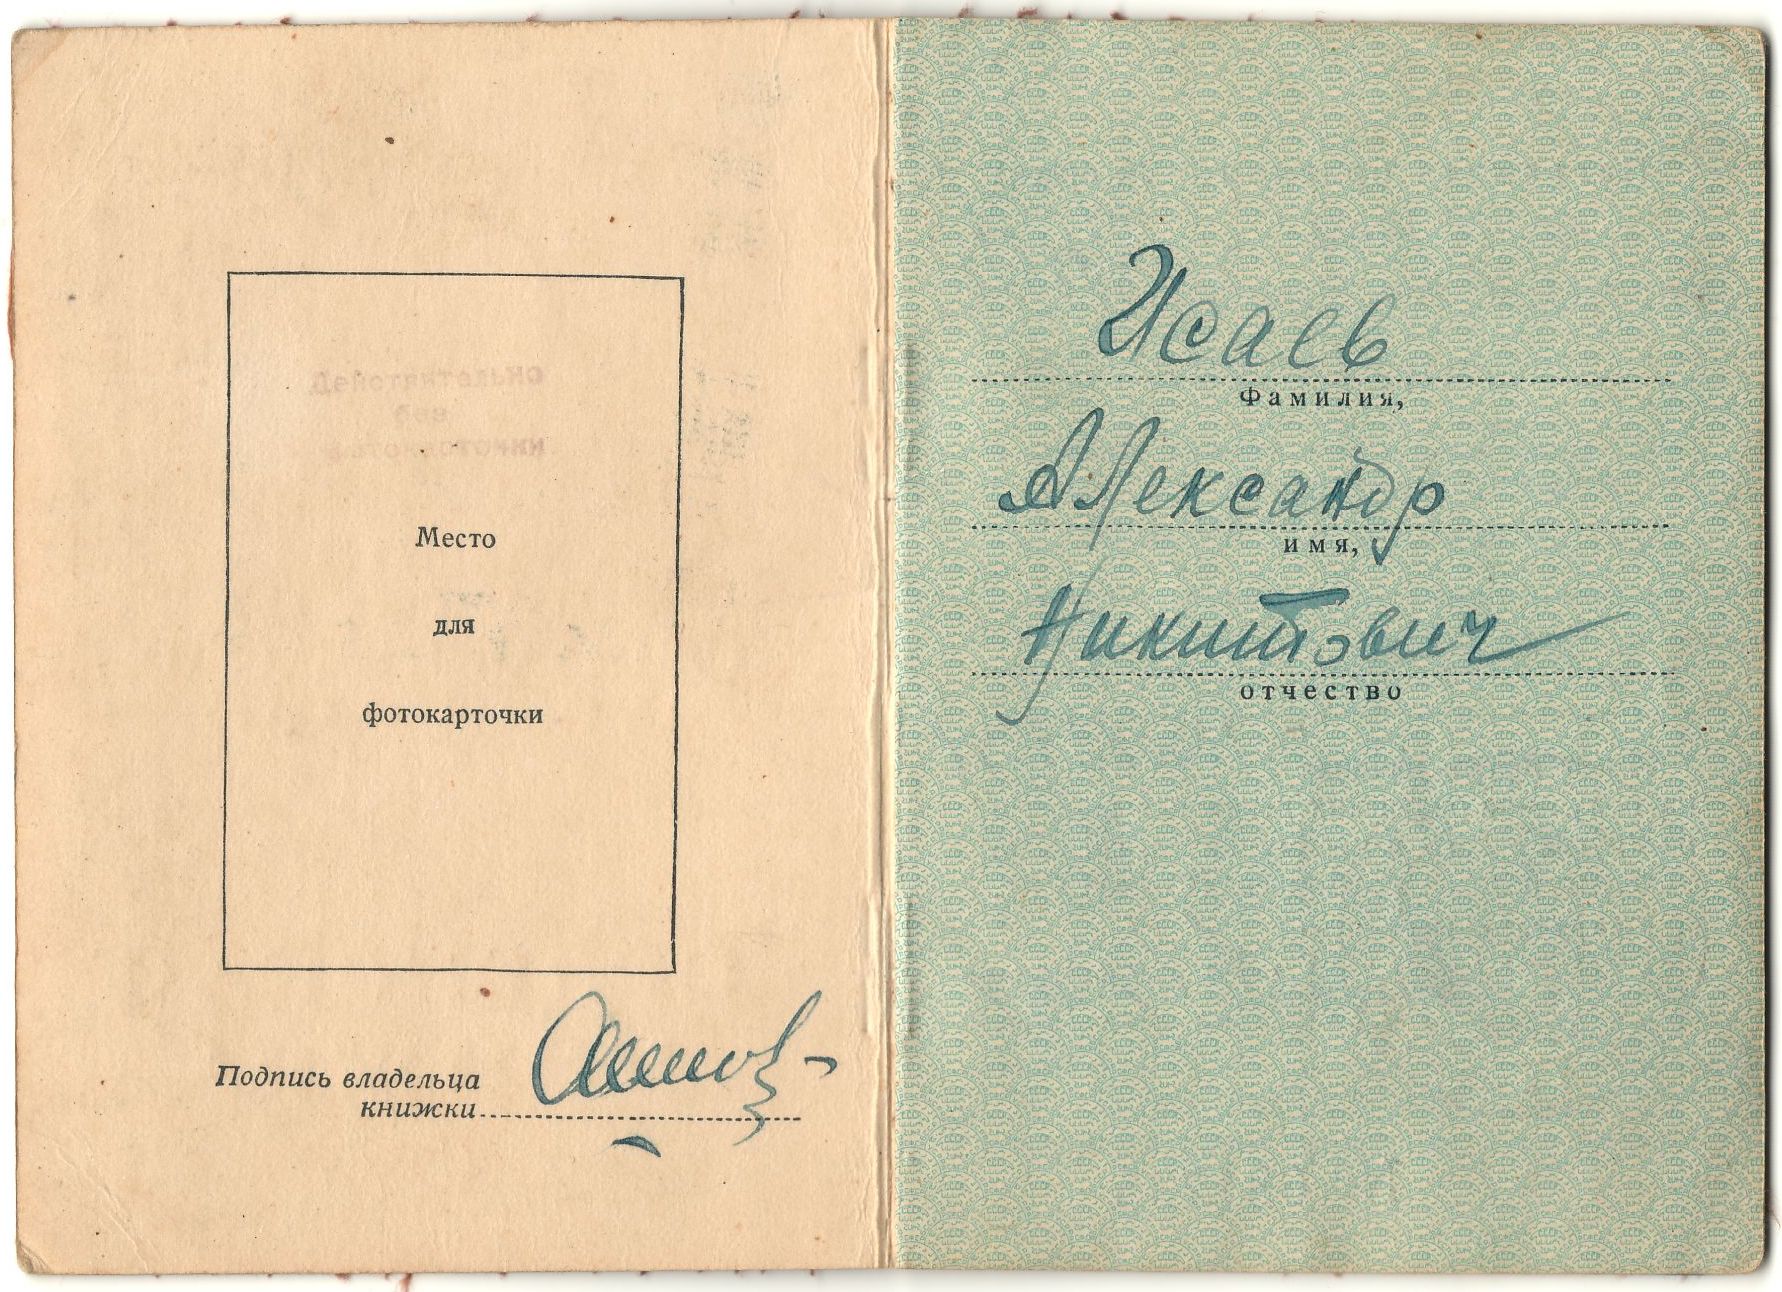 Действительно
без
фотокарточки
Место
для
фотокарточки
Подпись владельца
книжки
Исаев
Фамилия,
Александр
имя,
Никитович
отчество